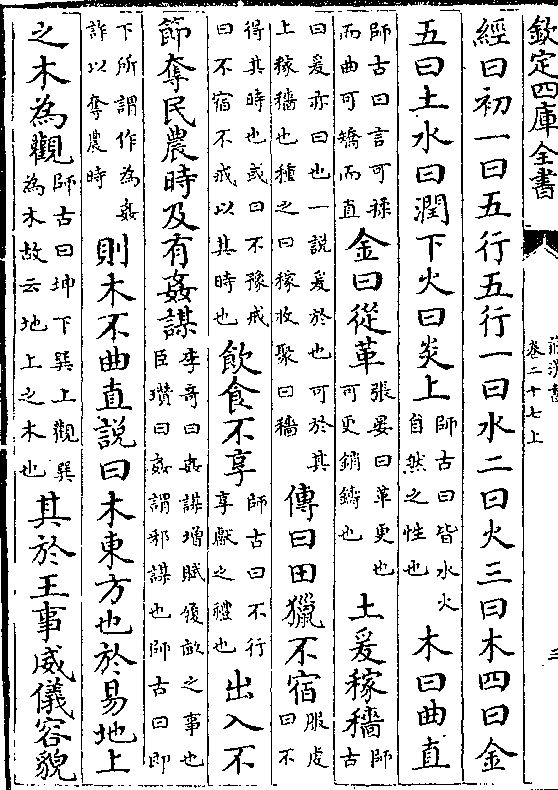 欽定四庫全書
卷二十七上
三
經曰初一曰五行五行一曰水二曰火三曰木四曰金
五曰土水曰潤下火曰炎上師古曰皆水火自然之性也木曰曲直
師古曰言可揉而曲可矯而直金曰從革張晏曰革更也可更銷鑄也土爰稼穡師古
曰爰亦曰也一說爰於也可於其上稼穡也種之曰稼收聚曰穡傳曰田獵不宿服虔曰不
得其時也或曰不豫戒曰不宿不戒以其時也飲食不享師古曰不行享獻之禮也出入不
節奪民農時及有姦謀李奇曰姦謀增賦履畝之事也臣瓚曰姦謂邪謀也師古曰即
下所謂作為姦詐以奪農時則木不曲直說曰木東方也於易地上
之木為觀師古曰坤下巽上觀巽為木故云地上之木也其於王事威儀容貌